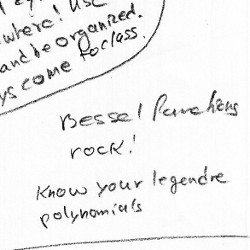 where! Use
and be organized.
ys come to class.
Bessel Functions
rock!
Know your legendre
polynomials